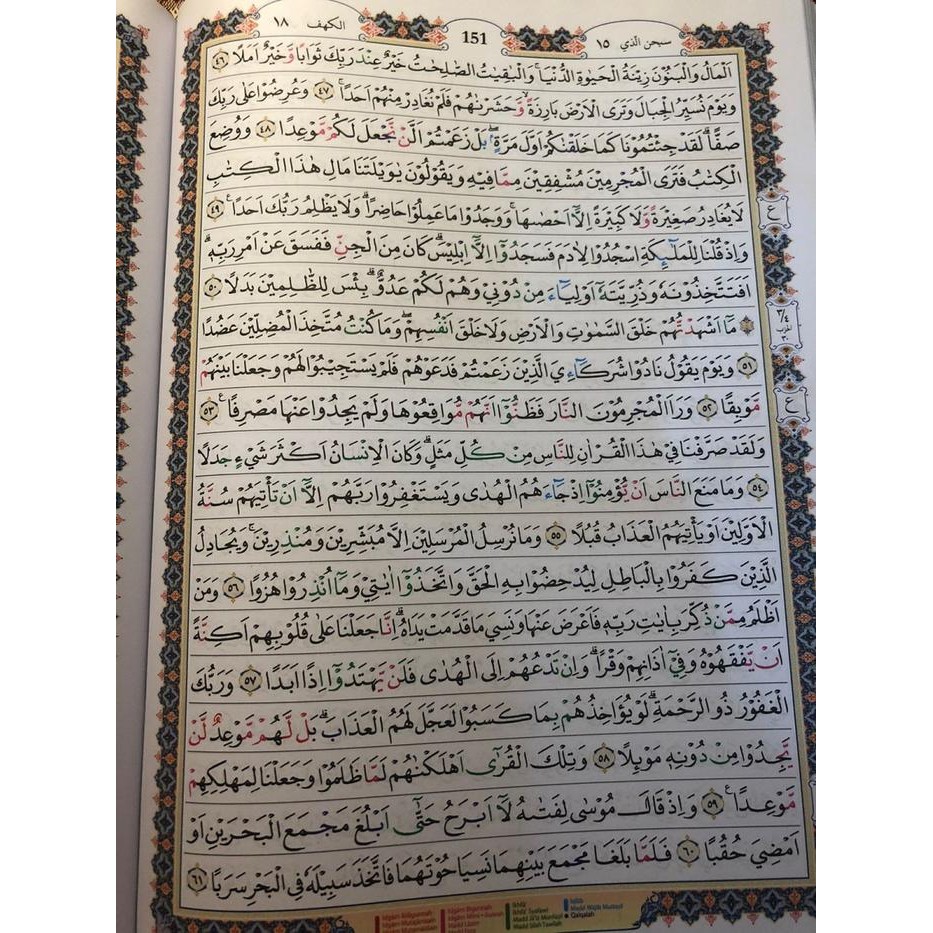 الكهف ١٨
151
سبحن الذي ١٥
اَلْمَالُ وَالْبَنُوْنَ زِيْنَةُ الْحَيٰوةِ الدُّنْيَاۚ وَالْبٰقِيٰتُ الصّٰلِحٰتُ خَيْرٌ عِنْدَ رَبِّكَ ثَوَابًا وَّخَيْرٌ اَمَلًا ٤٦
وَيَوْمَ نُسَيِّرُ الْجِبَالَ وَتَرَى الْاَرْضَ بَارِزَةًۙ وَّحَشَرْنٰهُمْ فَلَمْ نُغَادِرْ مِنْهُمْ اَحَدًاۚ ٤٧ وَعُرِضُوْا عَلٰى رَبِّكَ
صَفًّاۗ لَقَدْ جِئْتُمُوْنَا كَمَا خَلَقْنٰكُمْ اَوَّلَ مَرَّةٍۢ ۖبَلْ زَعَمْتُمْ اَلَّنْ نَّجْعَلَ لَكُمْ مَّوْعِدًا ٤٨ وَوُضِعَ
الْكِتٰبُ فَتَرَى الْمُجْرِمِيْنَ مُشْفِقِيْنَ مِمَّا فِيْهِ وَيَقُوْلُوْنَ يٰوَيْلَتَنَا مَالِ هٰذَا الْكِتٰبِ
لَا يُغَادِرُ صَغِيْرَةً وَّلَا كَبِيْرَةً اِلَّآ اَحْصٰىهَاۚ وَوَجَدُوْا مَا عَمِلُوْا حَاضِرًاۗ وَلَا يَظْلِمُ رَبُّكَ اَحَدًاࣖ ٤٩
وَاِذْ قُلْنَا لِلْمَلٰۤىِٕكَةِ اسْجُدُوْا لِاٰدَمَ فَسَجَدُوْٓا اِلَّآ اِبْلِيْسَۗ كَانَ مِنَ الْجِنِّ فَفَسَقَ عَنْ اَمْرِ رَبِّهٖۗ
اَفَتَتَّخِذُوْنَهٗ وَذُرِّيَّتَهٗٓ اَوْلِيَاۤءَ مِنْ دُوْنِيْ وَهُمْ لَكُمْ عَدُوٌّۗ بِئْسَ لِلظّٰلِمِيْنَ بَدَلًا ٥٠
۞ مَآ اَشْهَدْتُّهُمْ خَلْقَ السَّمٰوٰتِ وَالْاَرْضِ وَلَا خَلْقَ اَنْفُسِهِمْۖ وَمَا كُنْتُ مُتَّخِذَ الْمُضِلِّيْنَ عَضُدًا
٥١ وَيَوْمَ يَقُوْلُ نَادُوْا شُرَكَاۤءِيَ الَّذِيْنَ زَعَمْتُمْ فَدَعَوْهُمْ فَلَمْ يَسْتَجِيْبُوْا لَهُمْ وَجَعَلْنَا بَيْنَهُمْ
مَّوْبِقًا ٥٢ وَرَاَ الْمُجْرِمُوْنَ النَّارَ فَظَنُّوْٓا اَنَّهُمْ مُّوَاقِعُوْهَا وَلَمْ يَجِدُوْا عَنْهَا مَصْرِفًاࣖ ٥٣
وَلَقَدْ صَرَّفْنَا فِيْ هٰذَا الْقُرْاٰنِ لِلنَّاسِ مِنْ كُلِّ مَثَلٍۗ وَكَانَ الْاِنْسَانُ اَكْثَرَ شَيْءٍ جَدَلًا
٥٤ وَمَا مَنَعَ النَّاسَ اَنْ يُّؤْمِنُوْٓا اِذْ جَاۤءَهُمُ الْهُدٰى وَيَسْتَغْفِرُوْا رَبَّهُمْ اِلَّآ اَنْ تَأْتِيَهُمْ سُنَّةُ
الْاَوَّلِيْنَ اَوْ يَأْتِيَهُمُ الْعَذَابُ قُبُلًا ٥٥ وَمَا نُرْسِلُ الْمُرْسَلِيْنَ اِلَّا مُبَشِّرِيْنَ وَمُنْذِرِيْنَۚ وَيُجَادِلُ
الَّذِيْنَ كَفَرُوْا بِالْبَاطِلِ لِيُدْحِضُوْا بِهِ الْحَقَّ وَاتَّخَذُوْٓا اٰيٰتِيْ وَمَآ اُنْذِرُوْا هُزُوًا ٥٦ وَمَنْ
اَظْلَمُ مِمَّنْ ذُكِّرَ بِاٰيٰتِ رَبِّهٖ فَاَعْرَضَ عَنْهَا وَنَسِيَ مَا قَدَّمَتْ يَدَاهُۗ اِنَّا جَعَلْنَا عَلٰى قُلُوْبِهِمْ اَكِنَّةً
اَنْ يَّفْقَهُوْهُ وَفِيْٓ اٰذَانِهِمْ وَقْرًاۗ وَاِنْ تَدْعُهُمْ اِلَى الْهُدٰى فَلَنْ يَّهْتَدُوْٓا اِذًا اَبَدًا ٥٧ وَرَبُّكَ
الْغَفُوْرُ ذُو الرَّحْمَةِۗ لَوْ يُؤَاخِذُهُمْ بِمَا كَسَبُوْا لَعَجَّلَ لَهُمُ الْعَذَابَۗ بَلْ لَّهُمْ مَّوْعِدٌ لَّنْ
يَّجِدُوْا مِنْ دُوْنِهٖ مَوْىِٕلًا ٥٨ وَتِلْكَ الْقُرٰٓى اَهْلَكْنٰهُمْ لَمَّا ظَلَمُوْا وَجَعَلْنَا لِمَهْلِكِهِمْ
مَّوْعِدًاࣖ ٥٩ وَاِذْ قَالَ مُوْسٰى لِفَتٰىهُ لَآ اَبْرَحُ حَتّٰٓى اَبْلُغَ مَجْمَعَ الْبَحْرَيْنِ اَوْ
اَمْضِيَ حُقُبًا ٦٠ فَلَمَّا بَلَغَا مَجْمَعَ بَيْنِهِمَا نَسِيَا حُوْتَهُمَا فَاتَّخَذَ سَبِيْلَهٗ فِى الْبَحْرِ سَرَبًا ٦١
ع
٣/٤
الحزب
٣٠
ع